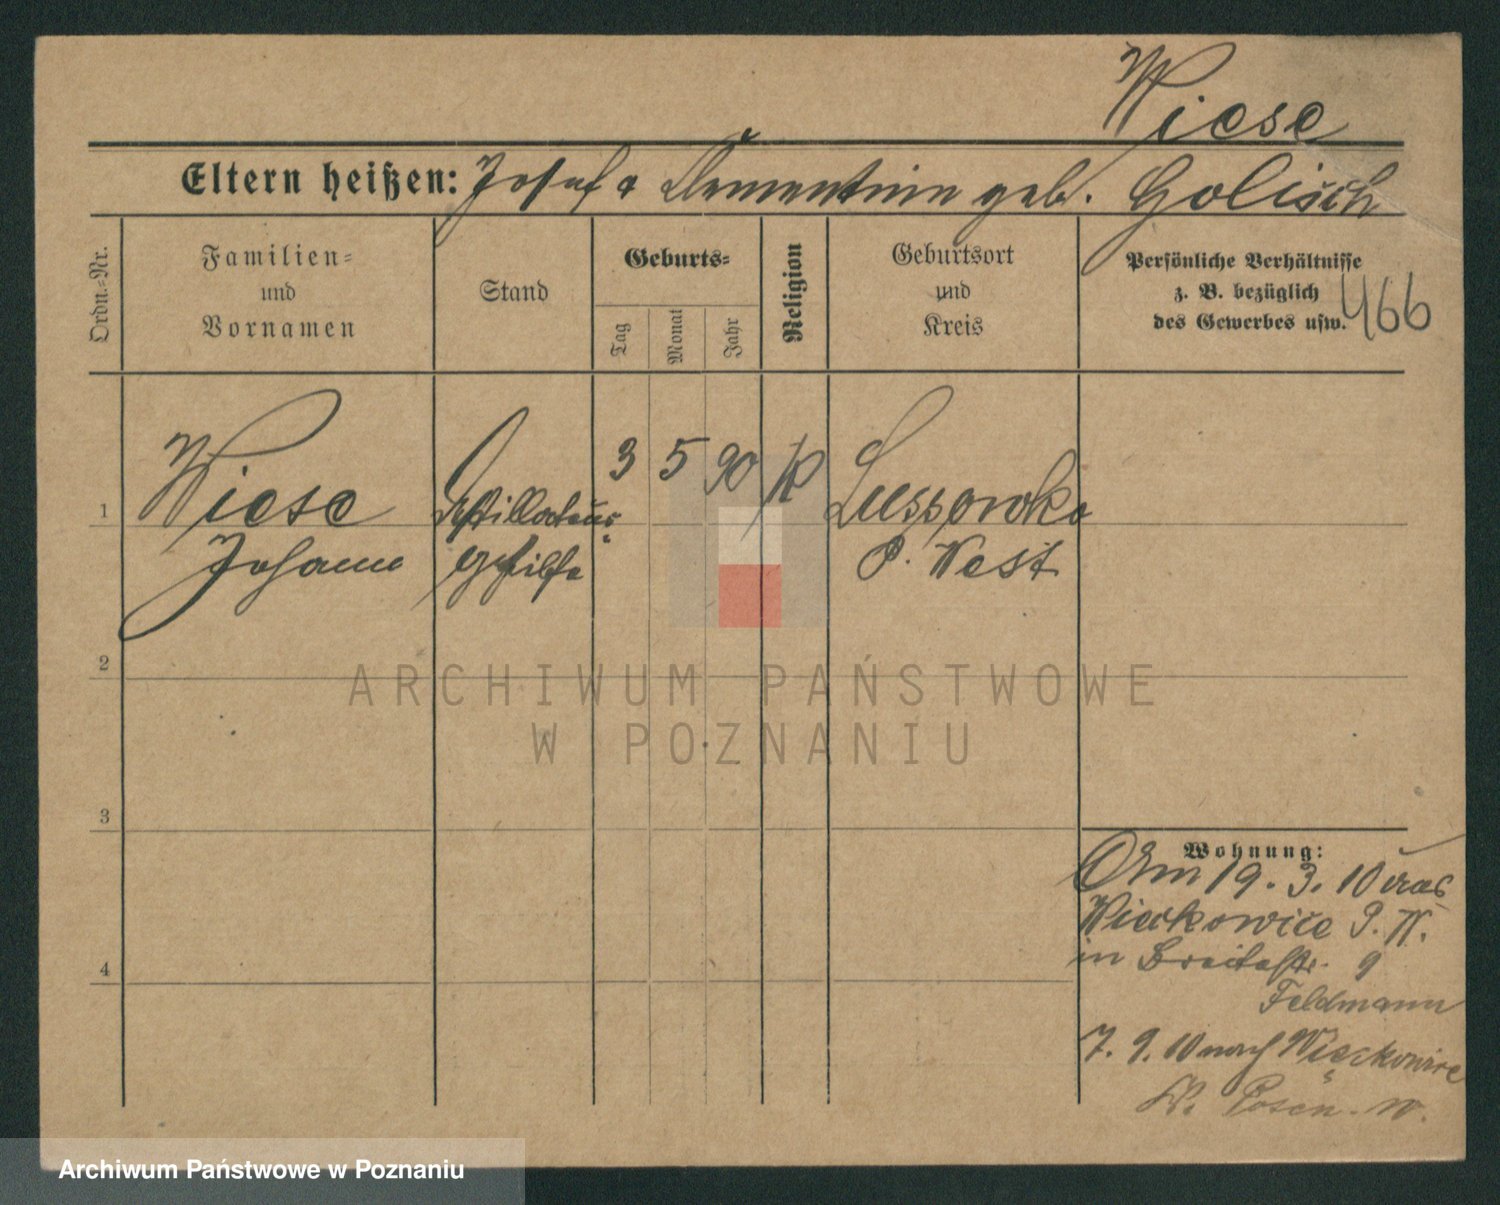 Wiese
Eltern heißen: Josef & Clementine geb. Golisch
Ordn.-Nr.
Familien-
und
Vornamen
Stand
Geburts-
Tag
Monat
Jahr
Religion
Geburtsort
und
Kreis
Persönliche Verhältnisse
z. B. bezüglich
des Gewerbes usw.
466
1
Wiese
Johann
Destillateur
Gehilfe
3 5 90
K
Lussowko
P. West
2
3
4
Wohnung:
Am 19. 3. 10 aus
Wieckowice P. W.
in Breitestr. 9
Feldmann
7. 9. 10 nach Więckowice
Posen. W.
ARCHIWUM PAŃSTWOWE
W POZNANIU
Archiwum Państwowe w Poznaniu